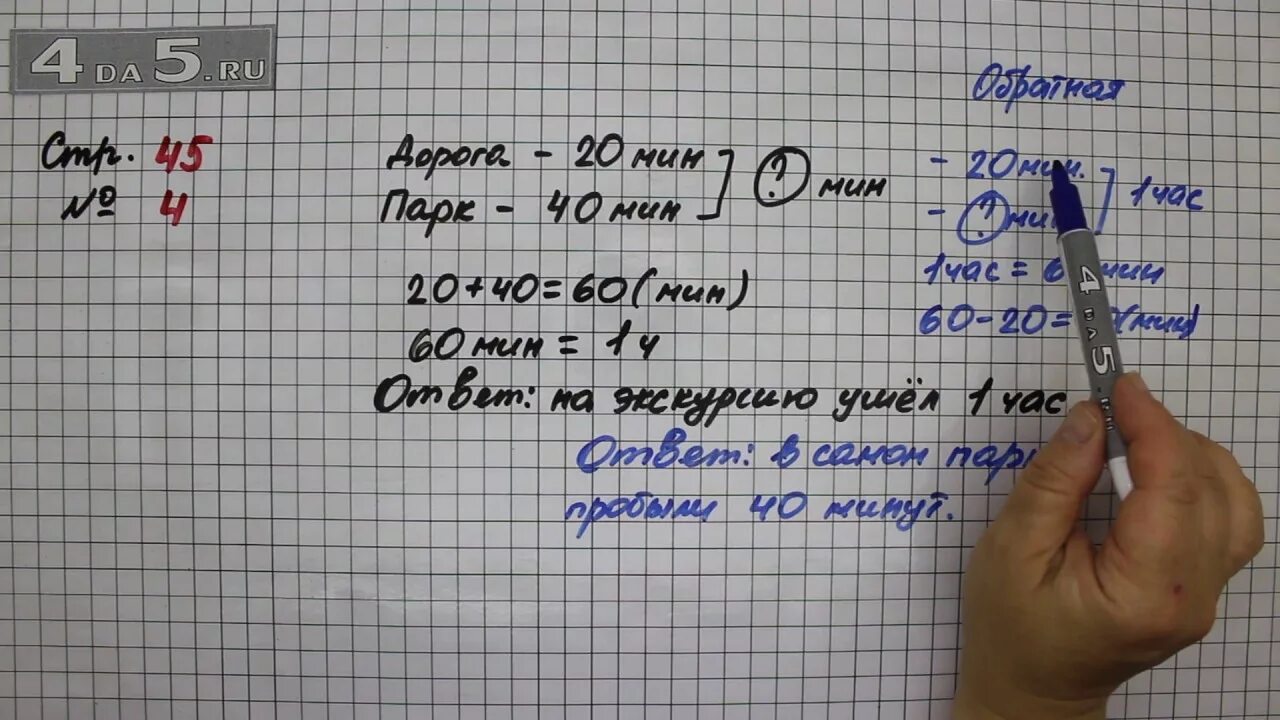 4DA5.RU
Стр. 45
№ 4
Дорога - 20 мин
Парк - 40 мин
? мин
20+40=60(мин)
60 мин = 1ч
Ответ: на экскурсию ушёл 1 час
Обратная
- 20 мин.
- ? мин
1 час
1 час = 6 мин
60-20= (мин)
Ответ: в самом
пробыли 40 минут.
4DA5